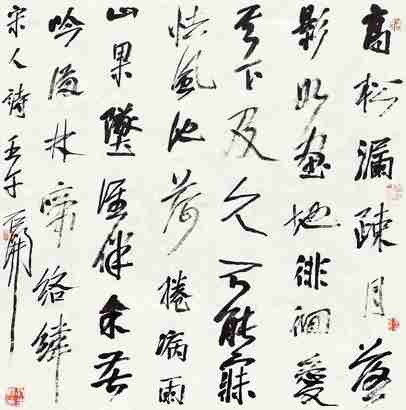 高松漏疎月落
影如畫地徘徊愛
其下及久不能寐
怯風池荷捲病雨
山果墜誰伴余苦
吟滿林啼絡緯
宋人詩 壬午 石開